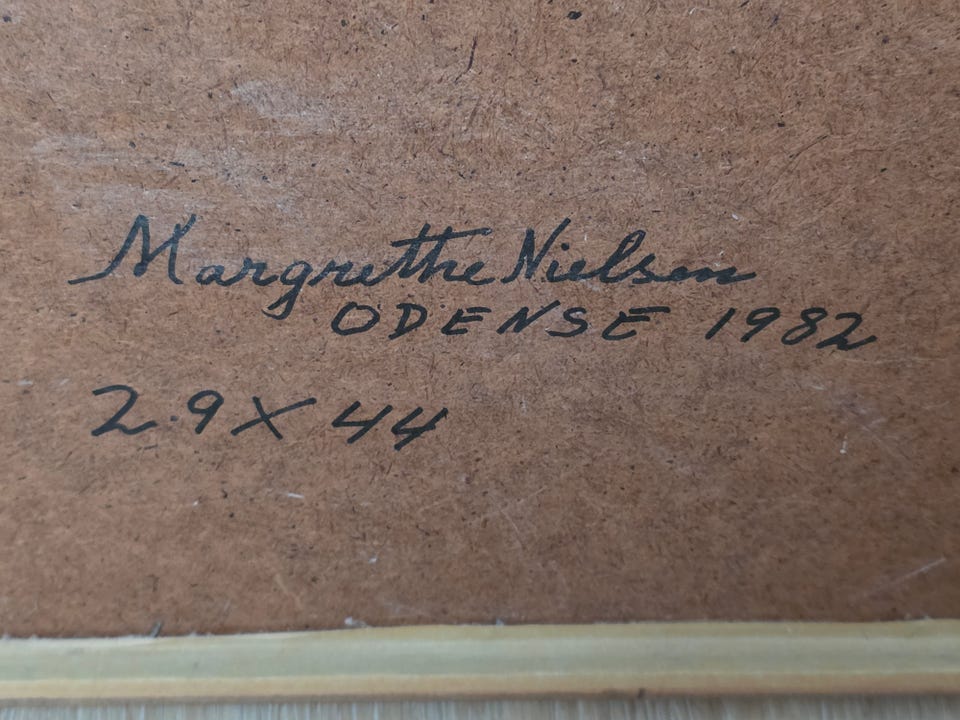 Margrethe Nielsen
ODENSE 1982
29 X 44